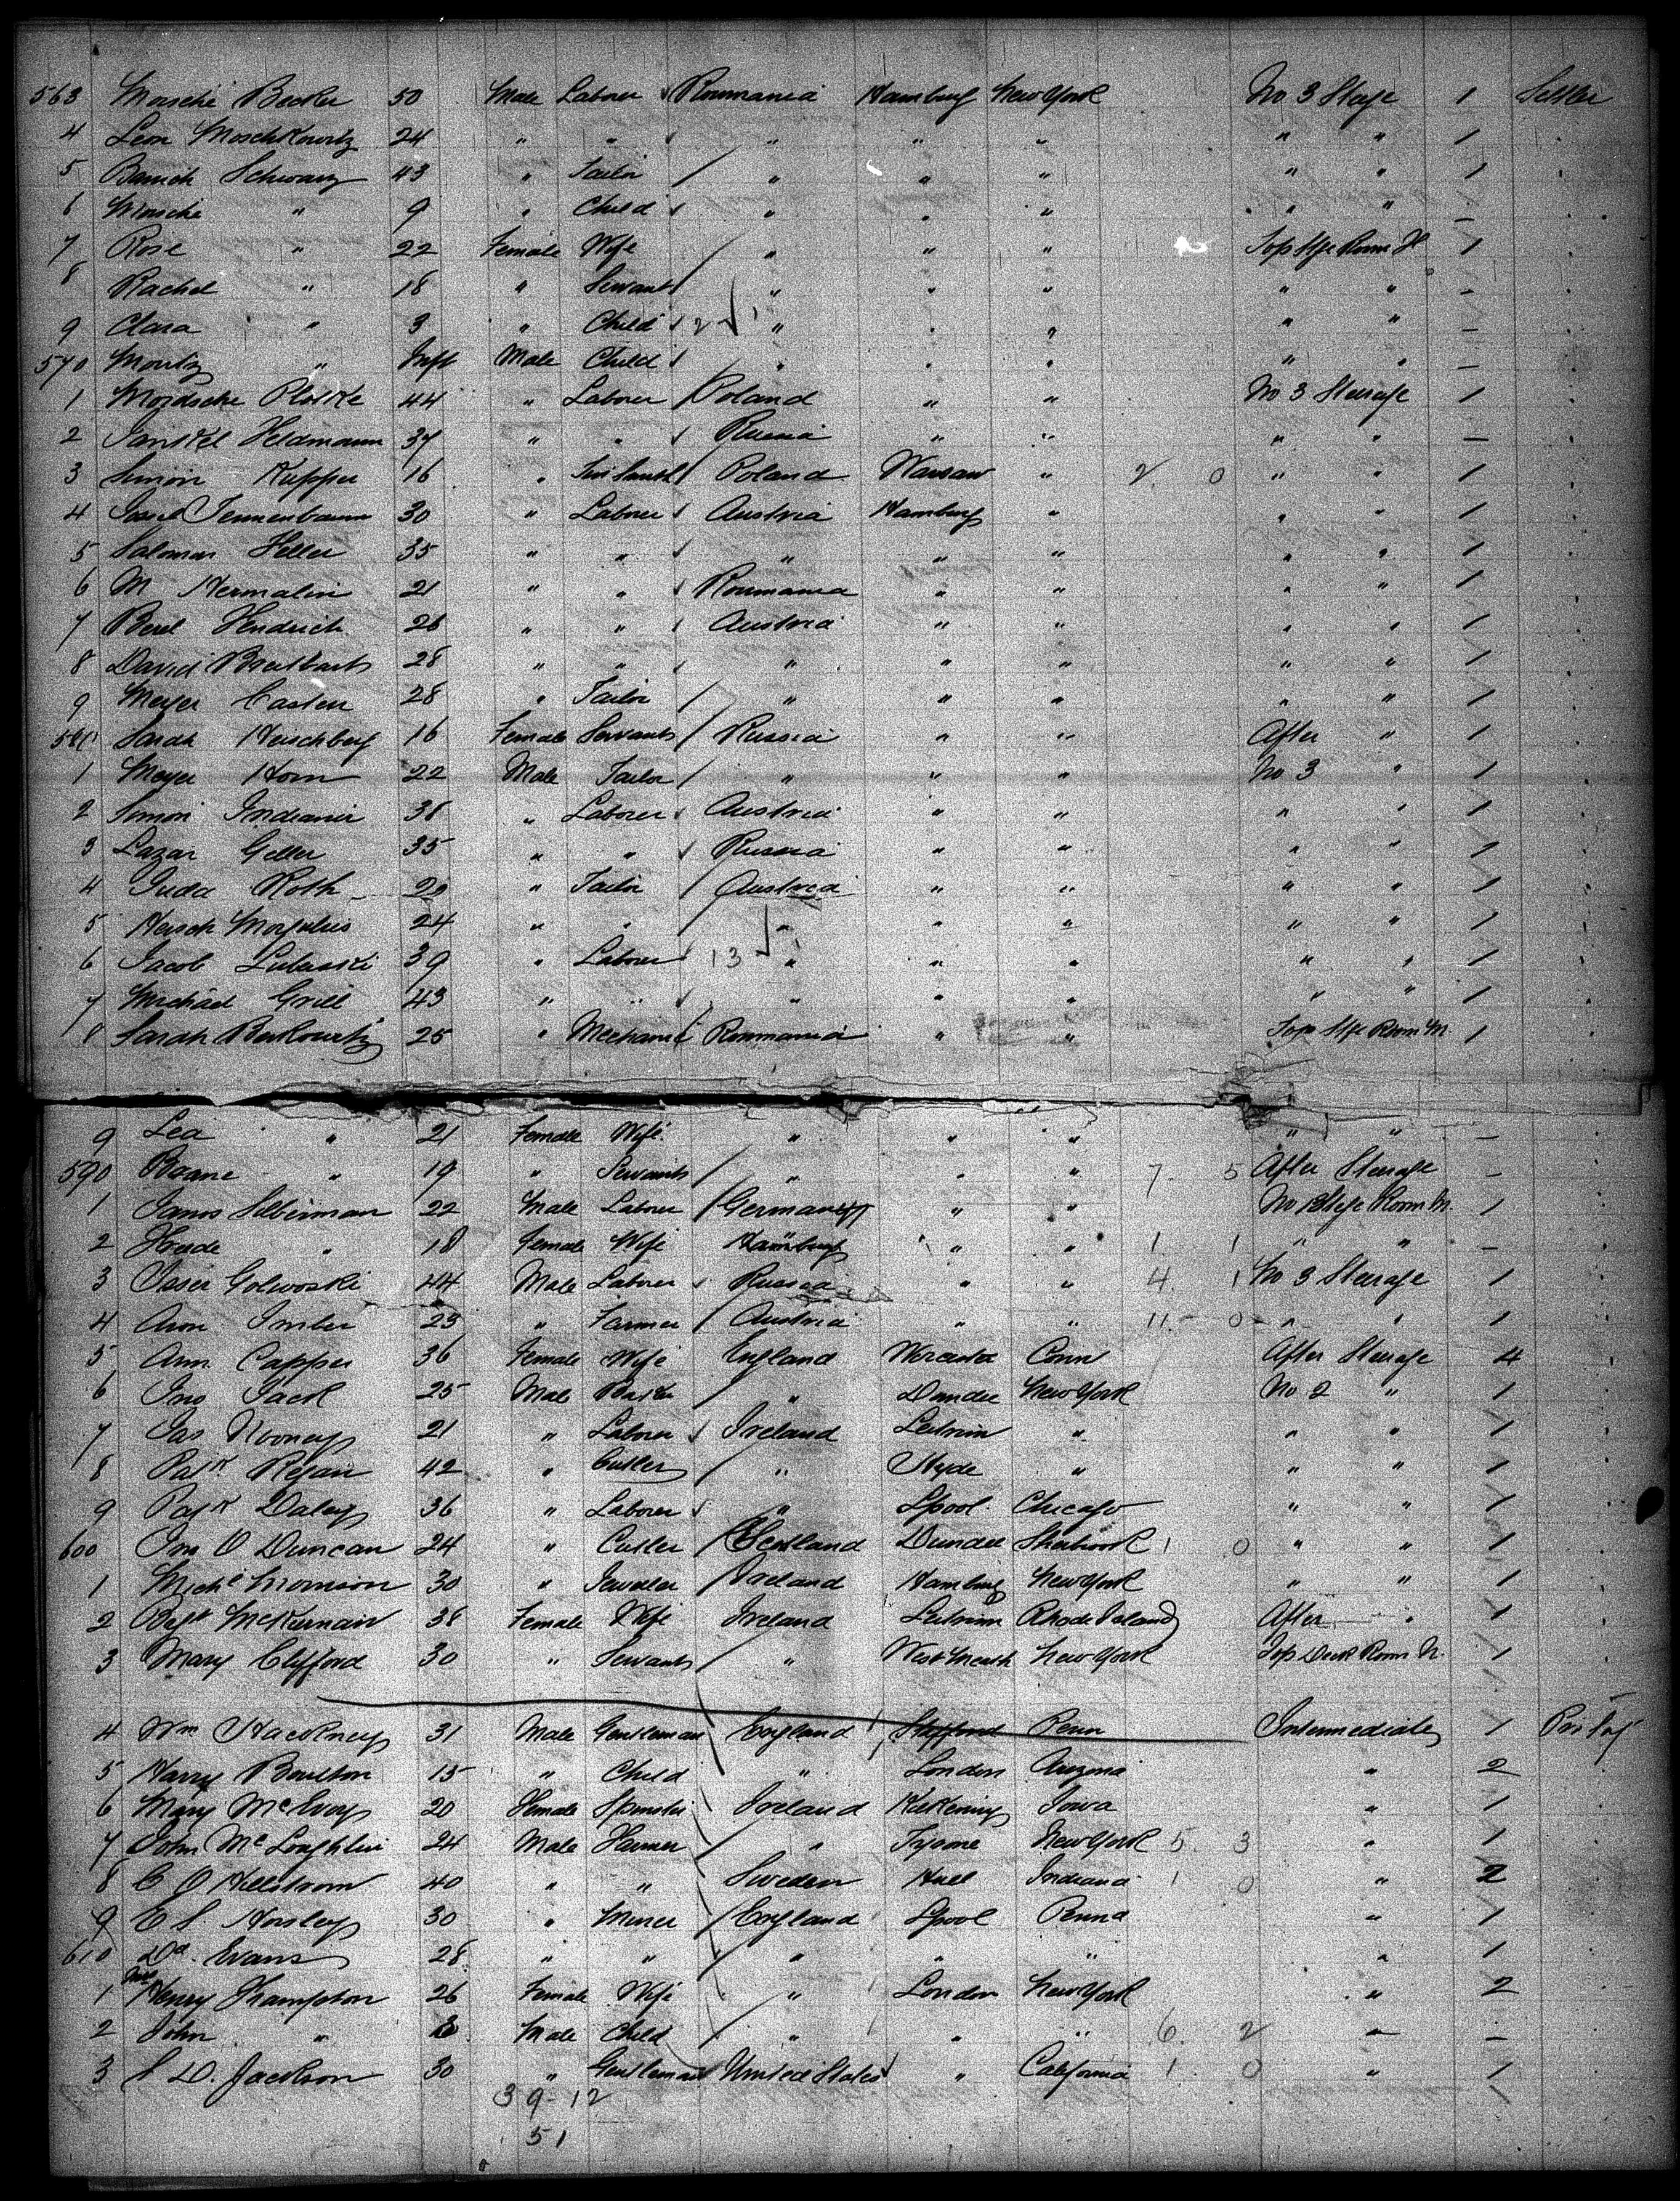 563 Morsche Becker 50 Male Laborer Roumania Hamburg New York No 3 Stege 1 Settler
4 Leon Moschkowitz 24 " " " " " " " 1
5 Baruch Schwarz 43 " Tailor " " " " " 1
6 Morsche " 9 " Child " " " " " –
7 Rose " 22 Female Wife " " " Top Stge Room H 1
8 Rachel " 18 " Servant " " " " " –
9 Clara " 3 " Child 2 " " " " " –
570 Moritz " Inft Male Child " " " " " –
1 Mordsche Plotke 44 " Laborer Poland " " No 3 Steerage 1
2 Heldmann 37 " " Russia " " " " –
3 Simon Kupper 16 " Tin Smith Poland Warsaw " 2 0 " " 1
4 Tennenbaum 30 " Laborer Austria Hamburg " " " 1
5 Salomon Heller 35 " " " " " " " 1
6 M Hermalin 21 " " Roumania " " " " 1
7 Berel Hendrich 26 " " Austria " " " " 1
8 David 28 " " " " " " " 1
9 Meyer Casten 28 " Tailor " " " " " 1
Sarah Herschberg 16 Female Servant Russia " " After " 1
1 Meyer Horn 22 Male Tailor " " " No 3 " 1
2 Simon Indianer 38 " Laborer Austria " " " " 1
3 Lazar Geller 35 " " Russia " " " " 1
4 Juda Roth 20 " Tailor Austria " " " " 1
5 Hersch Morgulies 24 " " " " " " " 1
6 Jacob Lubarski 39 " Laborer 13 " " " " " 1
7 Michael Grill 43 " " " " " " " 1
8 Sarah Berkowitz 25 " Mechanic Roumania " " Top Stge Room M 1
9 Lea " 21 Female Wife " " " " " –
590 " 19 " Servant " " " 7 5 After Steerage –
1 Silberman 22 Male Laborer Germany " " Stege Room M. 1
2 " 18 Female Wife Hamburg " " 1 1 " " –
3 Isser Golwoski 44 Male Laborer Russia " " 4 1 No 3 Steerage 1
4 Aron Imber 23 " Farmer Austria " " 11 0 " " 1
5 Ann Capper 36 Female Wife England Conn After Steerage 4
6 Jno Jack 25 Male " Dundee New York No 2 " 1
7 Jas Rooney 21 " Laborer Ireland Leitrim " " " 1
8 Patk Regan 42 " Cutler " Hyde " " " 1
9 Patk Daley 36 " Laborer " Lpool Chicago " " 1
600 Jno O Duncan 24 " Cutler Scotland Dundee Sherbrook 1 0 " " 1
1 Michl Morrison 30 " Jeweler Ireland Hamburg New York " " 1
2 Bgt McKiernan 38 Female Wife Ireland Leitrim Rhode Island After " 1
3 Mary Clifford 30 " Servant " West Meath New York Top Deck Room N. 1
4 Wm Hackney 31 Male Gentleman England Penn Intermediate 1
5 Harry Boulton 15 " Child " London Arizona " 2
6 Mary McEvoy 20 Female Spinster Ireland Kilkenny Iowa " 1
7 John McLoughlin 24 Male Farmer " Tyrone New York 5 3 " 1
8 C O Hellstrom 40 " " Sweden Hull Indiana 1 0 " 2
9 E S. Horsley 30 " Miner England Lpool Penna " 1
610 Dd. Evans 28 " " " " " " 1
1 Mrs Henry Thampston 26 Female Wife " London New York " 2
2 John " 3 Male Child " " " 6 2 " –
3 S D. Jackson 30 " Gentleman United States " California 1 0 " 1
39-12
51